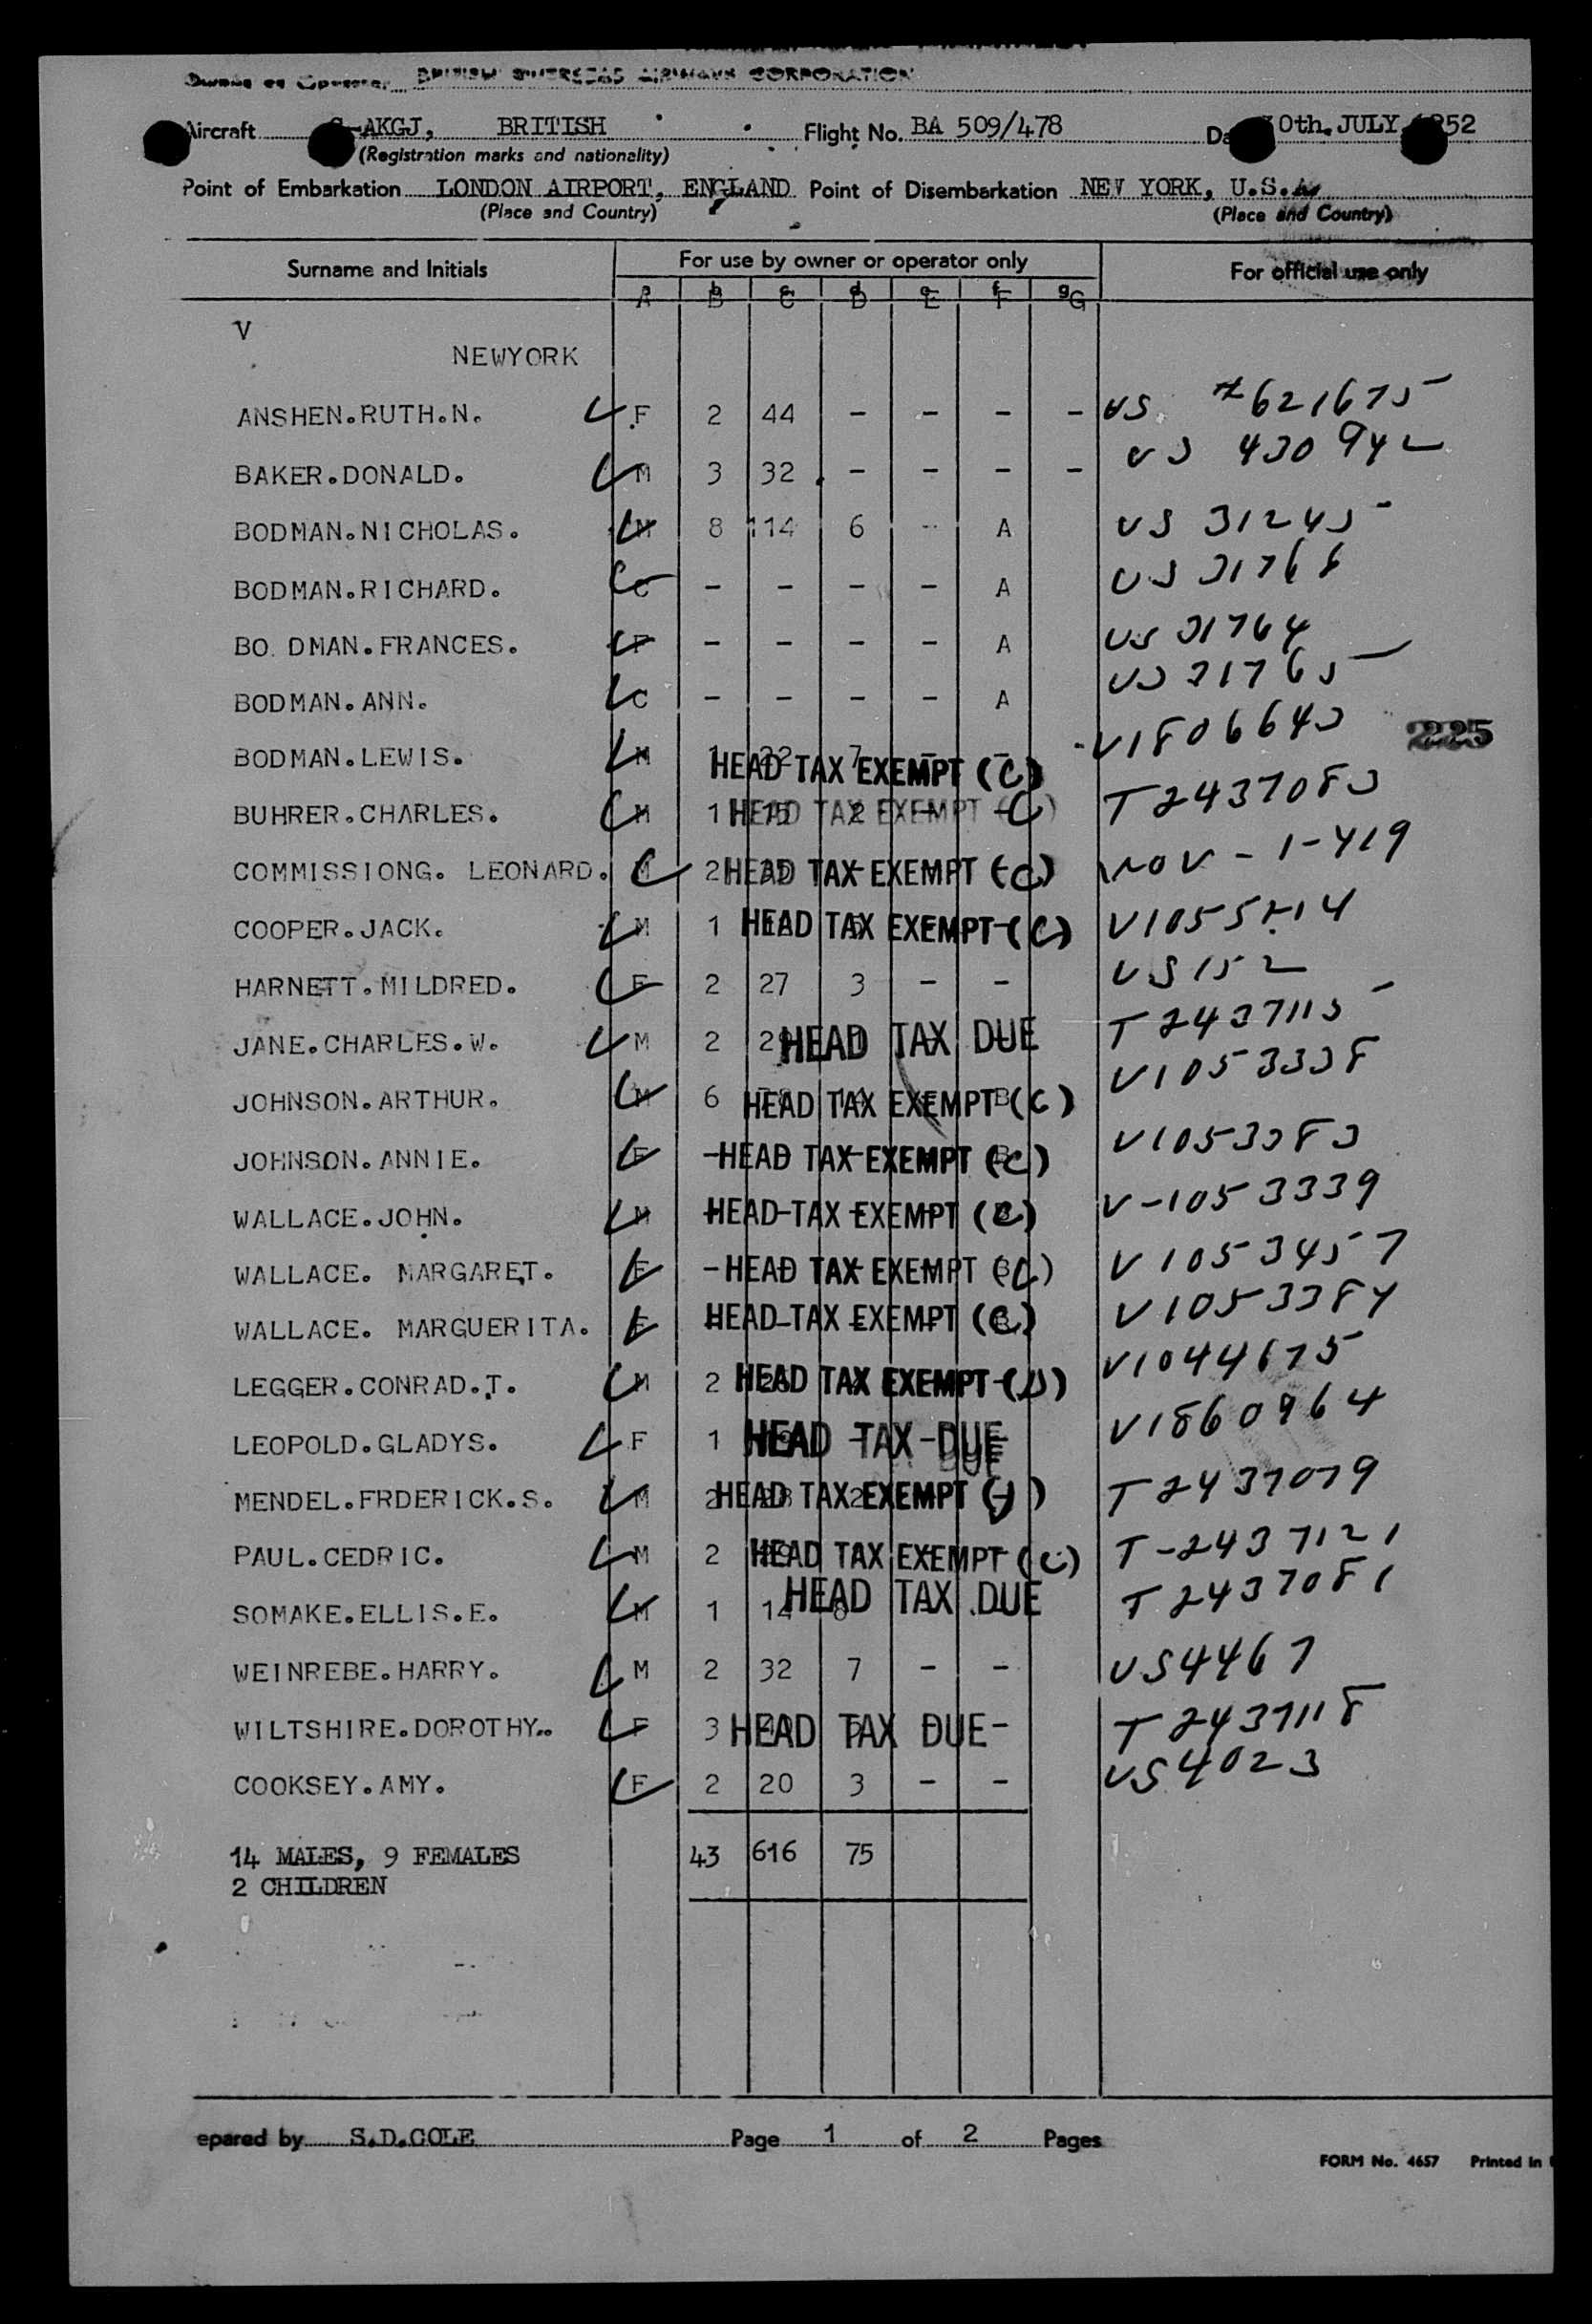 BRITISH OVERSEAS AIRWAYS CORPORATION
Aircraft -AKGJ, BRITISH Flight No. BA 509/478 0th. JULY 52
(Registration marks and nationality)
Point of Embarkation LONDON AIRPORT, ENGLAND Point of Disembarkation NEW YORK, U.S.A.
(Place and Country) (Place and Country)
Surname and Initials For use by owner or operator only For official use only
A B C D E F G
V
NEWYORK
ANSHEN.RUTH.N. F 2 44 - - - - US #621675
BAKER.DONALD. M 3 32 - - - - US 430942
BODMAN.NICHOLAS. M 8 114 6 - A US 31245
BODMAN.RICHARD. C - - - - A US 31766
BO DMAN.FRANCES. F - - - - A US 31764
BODMAN.ANN. C - - - - A US 31765
BODMAN.LEWIS. M 1 22 7 HEAD TAX EXEMPT (C) V1806643 225
BUHRER.CHARLES. M 1 15 2 HEAD TAX EXEMPT (C) T2437083
COMMISSIONG. LEONARD. M 2 HEAD TAX EXEMPT (C) NOV-1-419
COOPER.JACK. M 1 HEAD TAX EXEMPT (C) V1055214
HARNETT.MILDRED. F 2 27 3 - - US152
JANE.CHARLES.W. M 2 HEAD TAX DUE T2437115
JOHNSON.ARTHUR. M 6 HEAD TAX EXEMPT (C) V1053338
JOHNSON.ANNIE. F - HEAD TAX EXEMPT (C) V1053383
WALLACE.JOHN. M - HEAD TAX EXEMPT (C) V-1053339
WALLACE. MARGARET. F - HEAD TAX EXEMPT (C) V1053457
WALLACE. MARGUERITA. F - HEAD TAX EXEMPT (C) V1053384
LEGGER.CONRAD.T. M 2 HEAD TAX EXEMPT (D) V1044675
LEOPOLD.GLADYS. F 1 HEAD TAX DUE V1860964
MENDEL.FRDERICK.S. M 2 HEAD TAX EXEMPT T2437079
PAUL.CEDRIC. M 2 HEAD TAX EXEMPT (C) T-2437121
SOMAKE.ELLIS.E. M 1 14 8 HEAD TAX DUE T2437081
WEINREBE.HARRY. M 2 32 7 - - US4467
WILTSHIRE.DOROTHY.. F 3 HEAD TAX DUE - T2437118
COOKSEY.AMY. F 2 20 3 - - US4023
14 MALES, 9 FEMALES 43 616 75
2 CHILDREN
epared by S.D.COLE Page 1 of 2 Pages
FORM No. 4657 Printed in